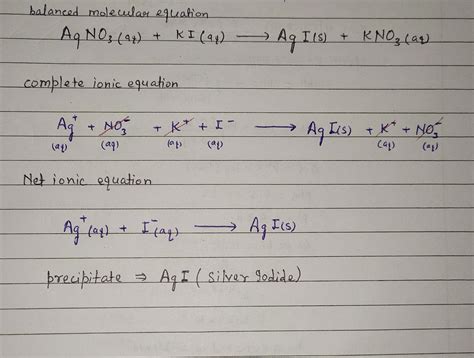 balanced molecular equation
AgNO3(aq) + KI(aq) → AgI(s) + KNO3(aq)
complete ionic equation
Ag+(aq) + NO3-(aq) + K+(aq) + I-(aq) → AgI(s) + K+(aq) + NO3-(aq)
Net ionic equation
Ag+(aq) + I-(aq) → AgI(s)
precipitate ⇒ AgI (silver Iodide)